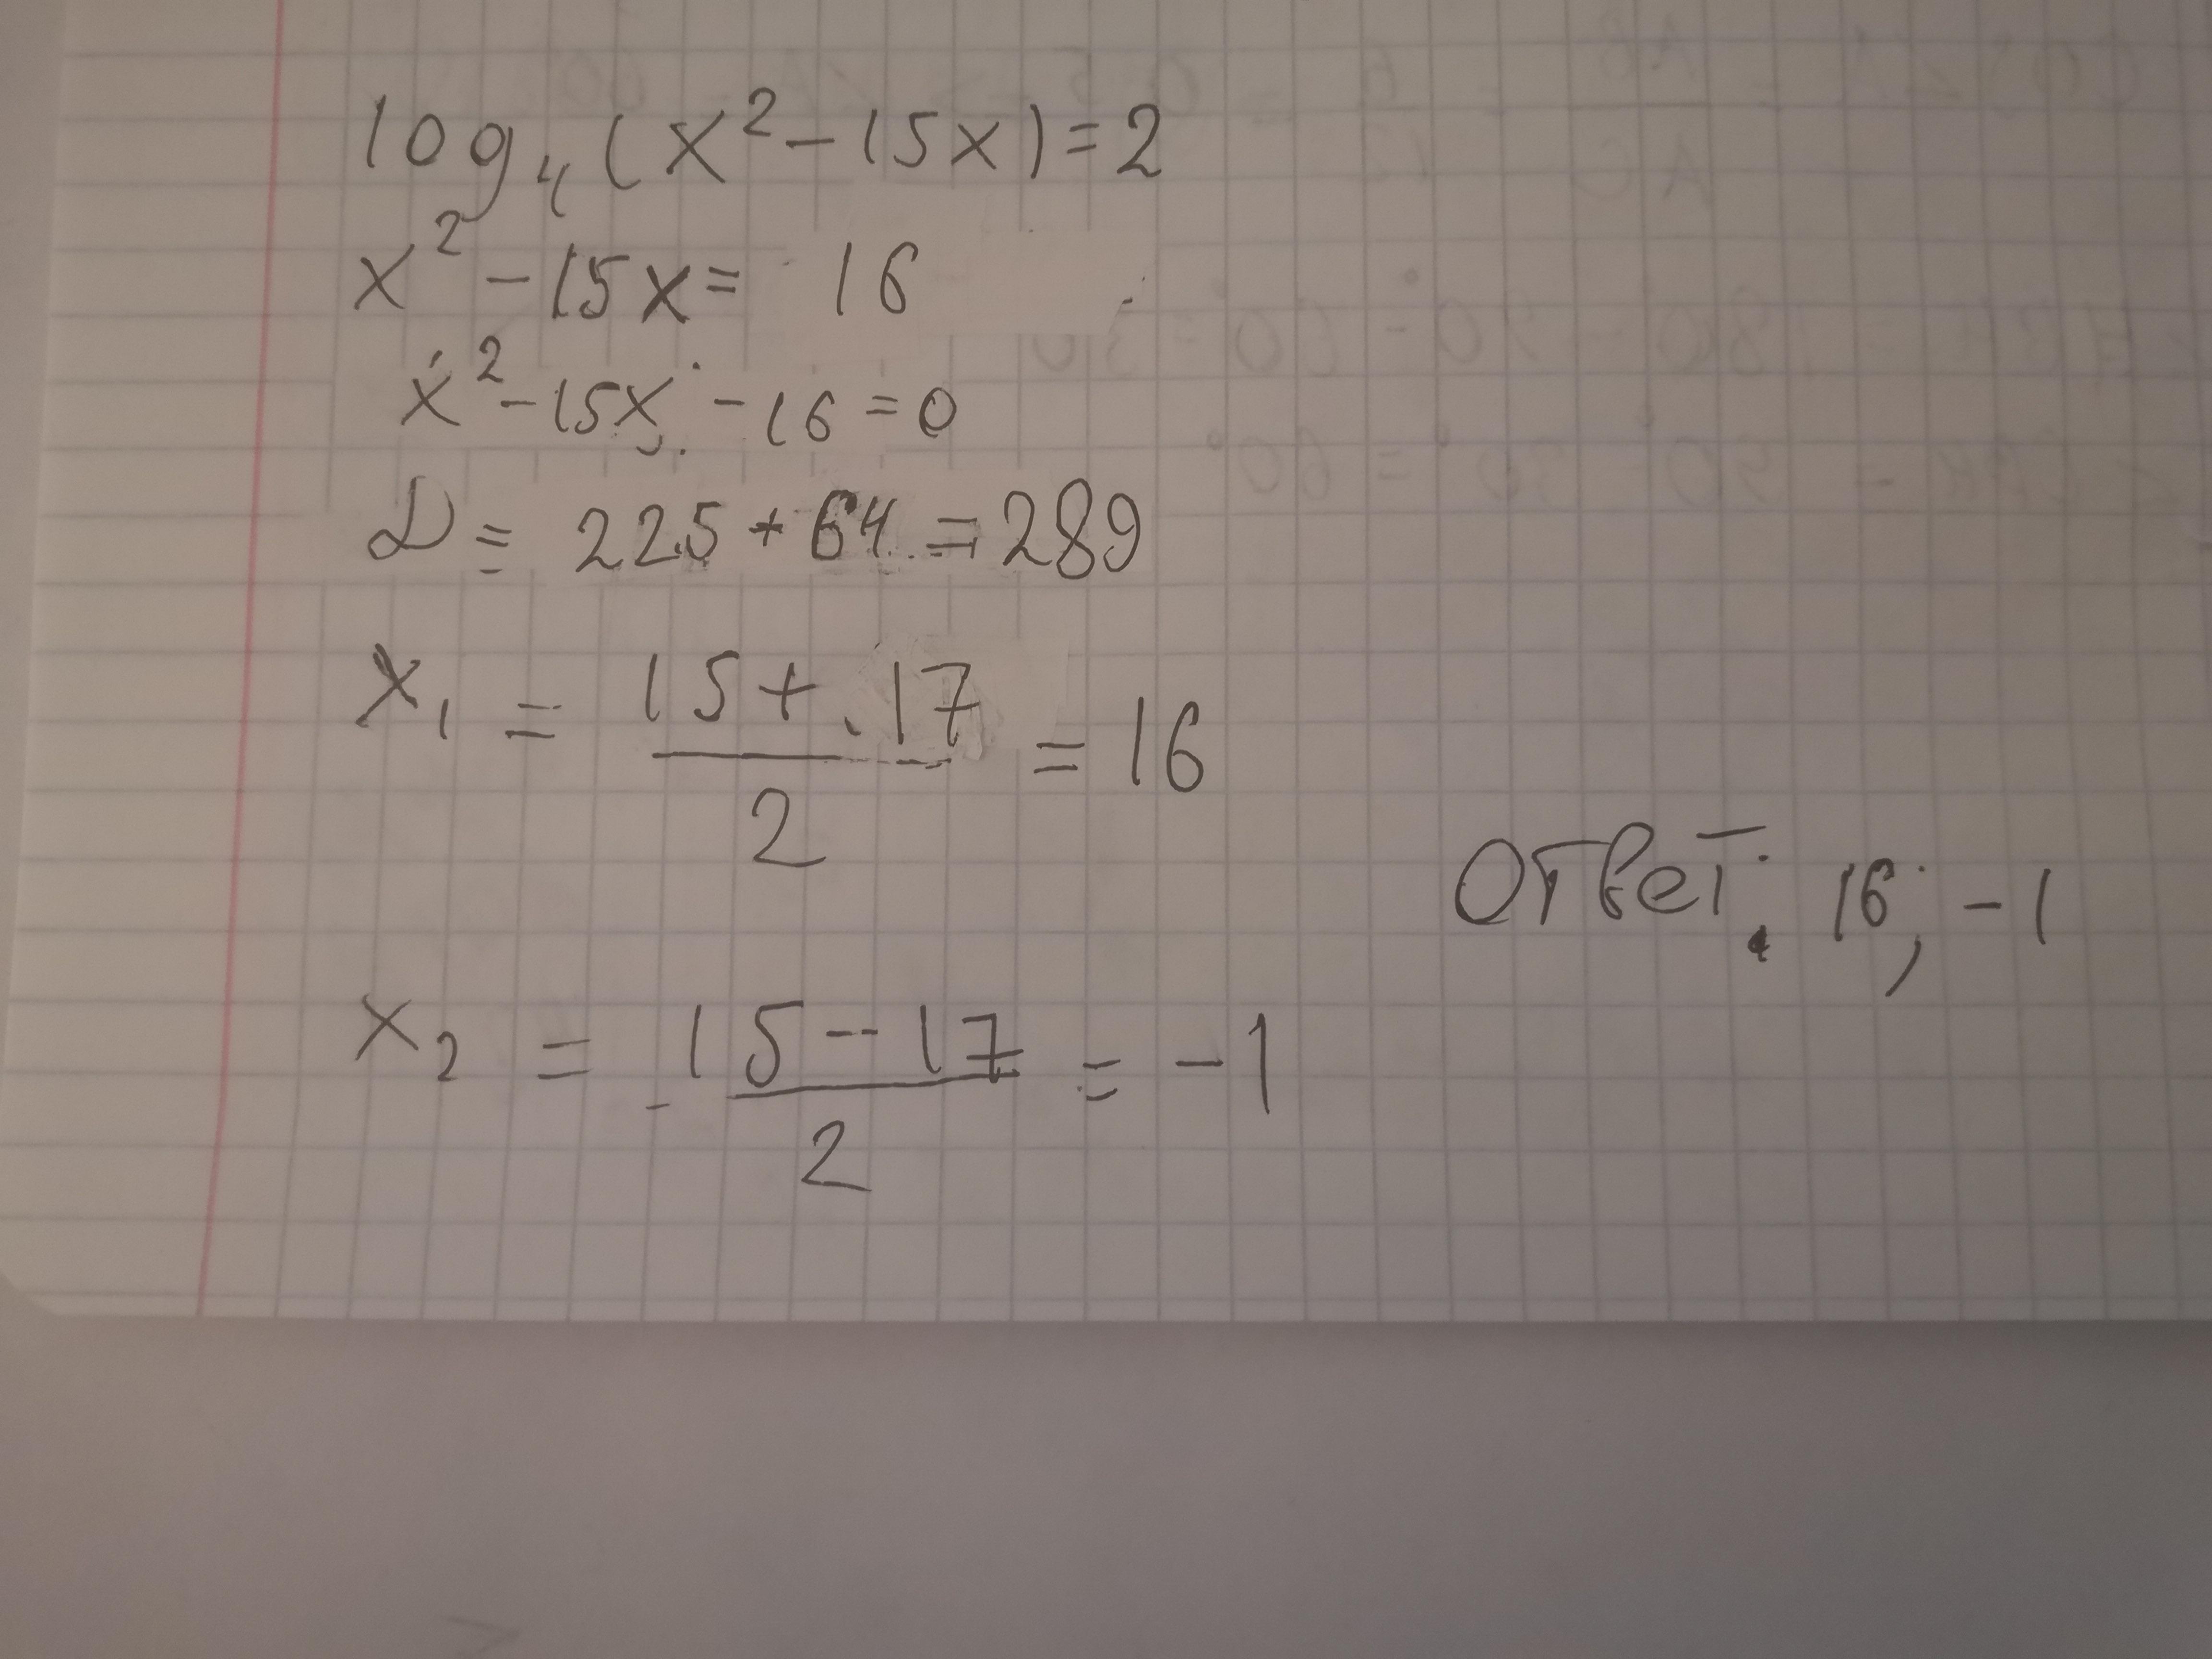 log₄(x²-15x)=2
x²-15x= 16
x²-15x-16=0
D= 225+64=289
x₁ = (15+17)/2 = 16
Ответ: 16; -1
x₂ = (15-17)/2 = -1